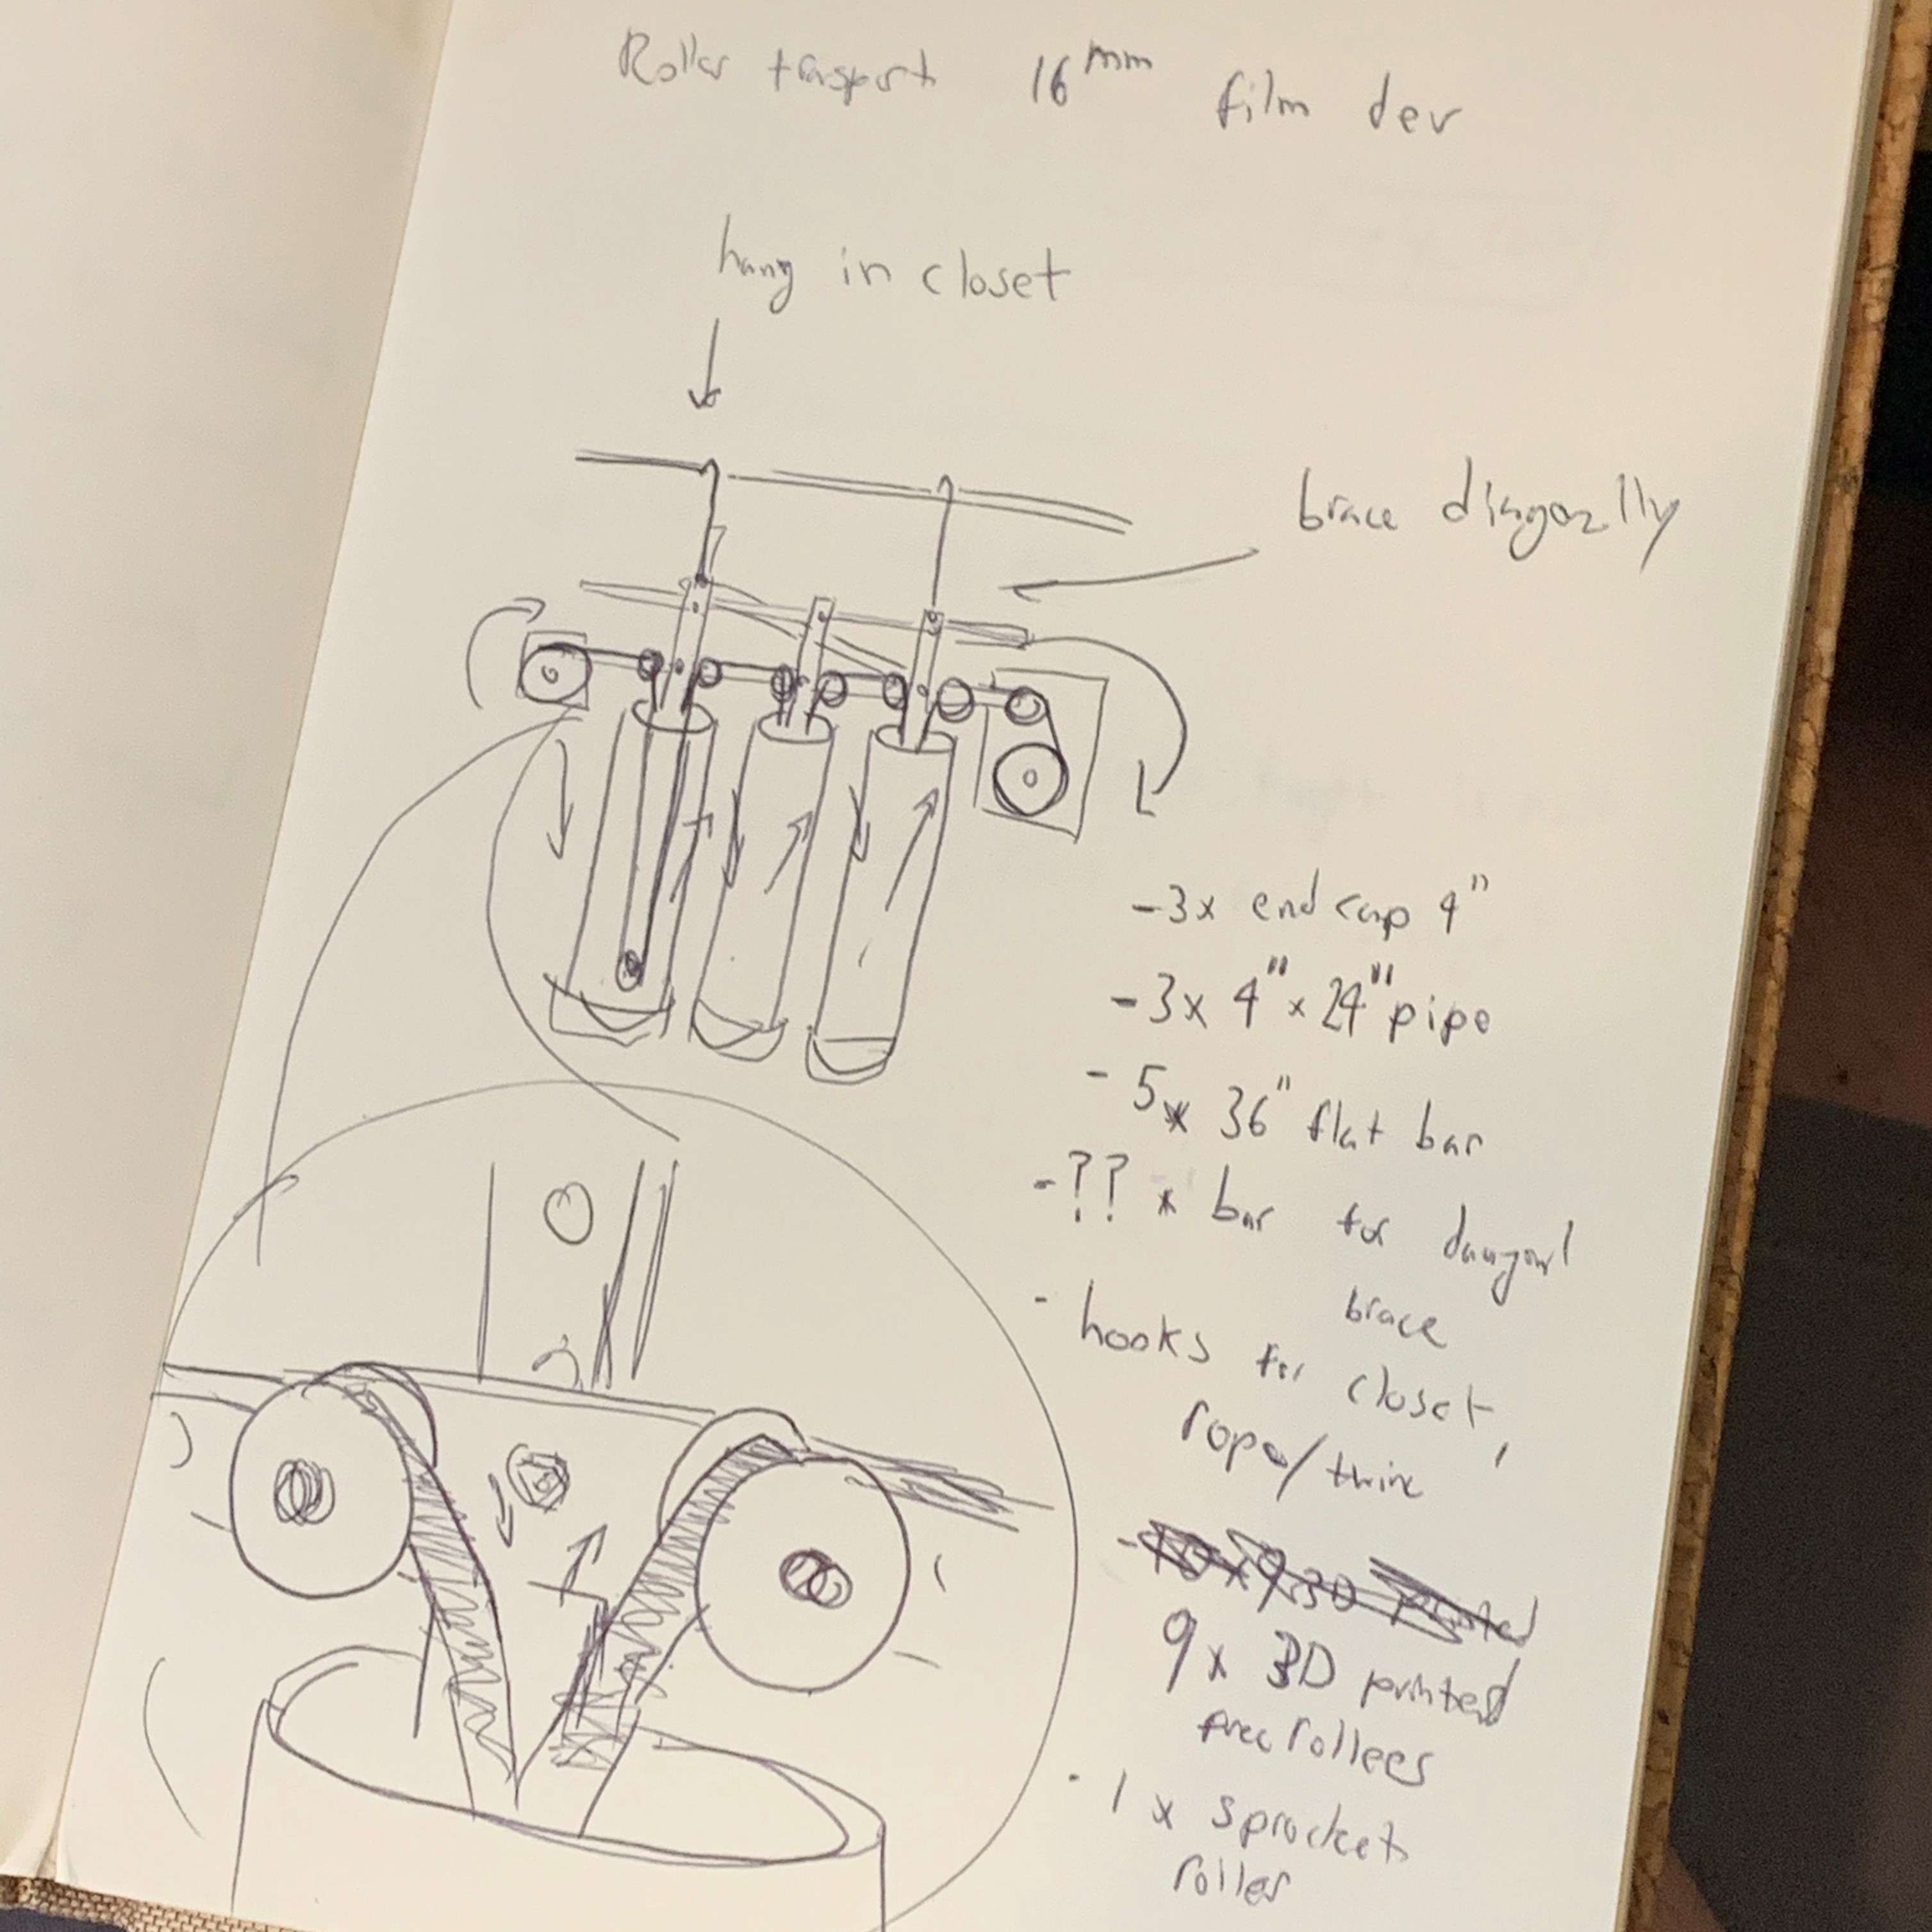 Roller trasport 16mm film dev
hang in closet
brace diagonally
- 3x end cap 4"
- 3x 4" x 24" pipe
- 5x 36" flat bar
- ?? x bar for
brace
- hooks for closet,
rope/twine
9x 3D printed
free rollees
- 1x sprocket
roller